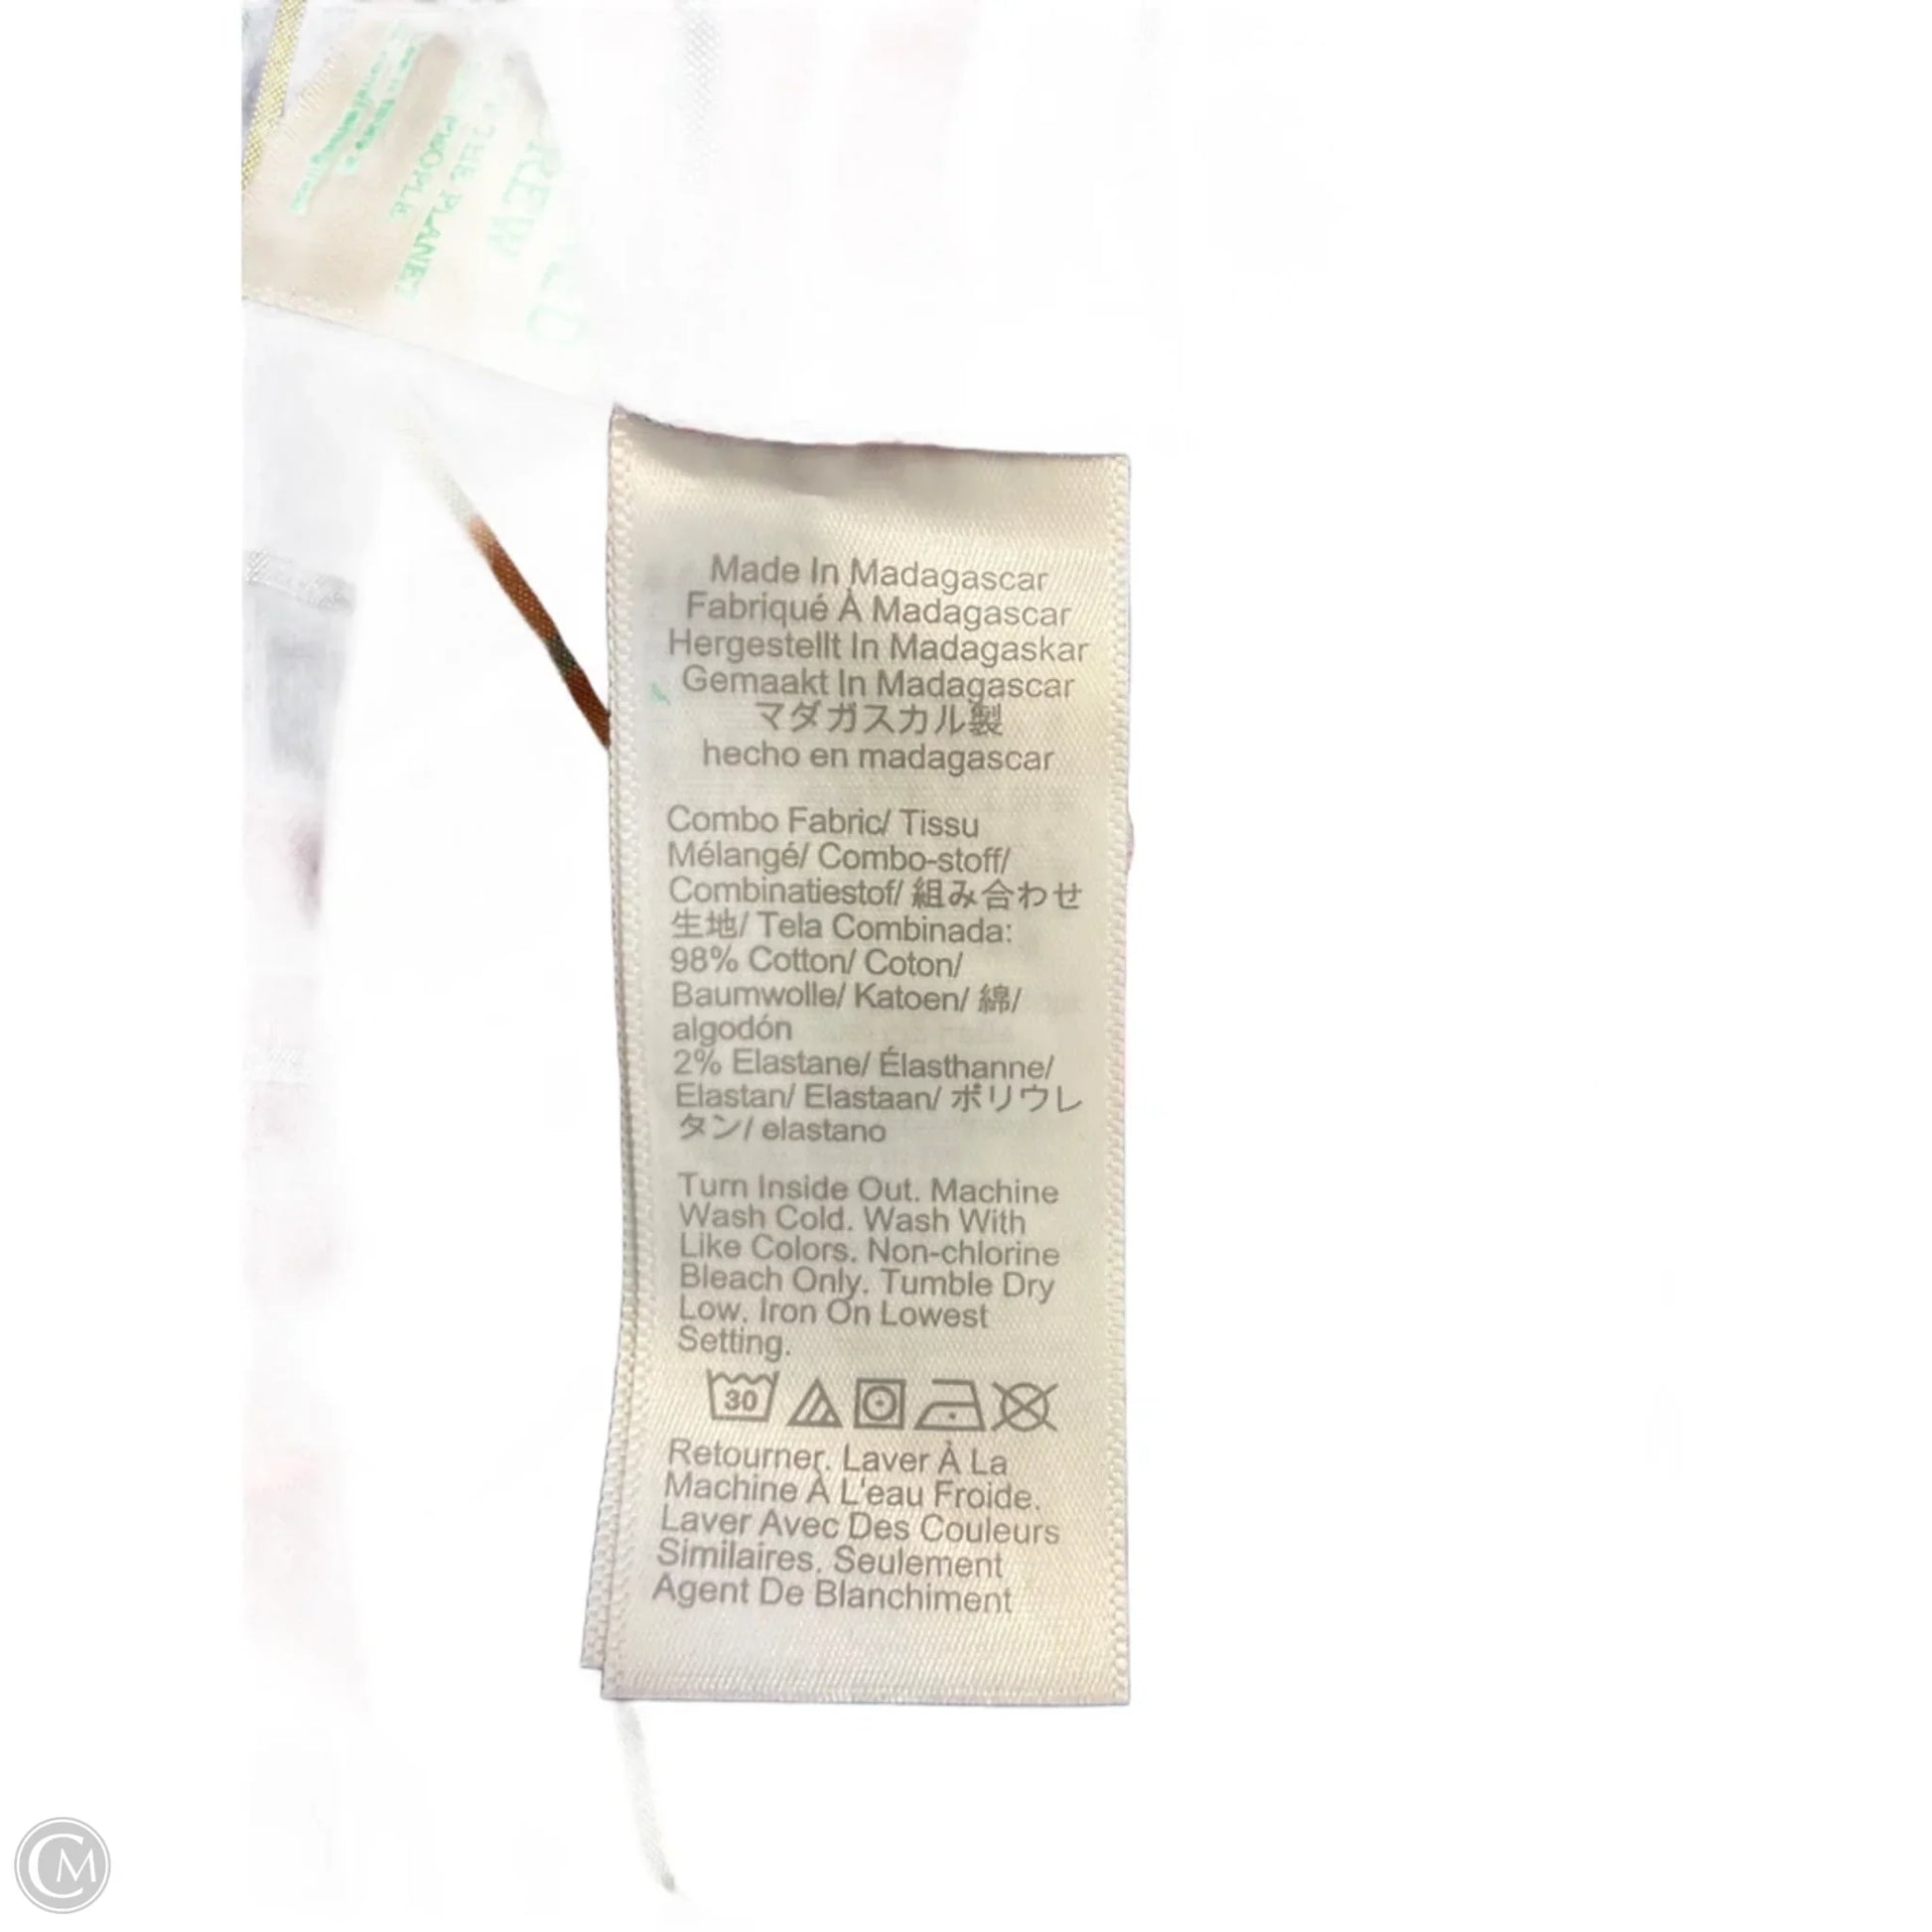 REW
THE PLANET
PEOPLE
Made In Madagascar
Fabriqué À Madagascar
Hergestellt In Madagaskar
Gemaakt In Madagascar
マダガスカル製
hecho en madagascar
Combo Fabric/ Tissu
Mélangé/ Combo-stoff/
Combinatiestof/ 組み合わせ
生地/ Tela Combinada:
98% Cotton/ Coton/
Baumwolle/ Katoen/ 綿/
algodón
2% Elastane/ Élasthanne/
Elastan/ Elastaan/ ポリウレ
タン/ elastano
Turn Inside Out. Machine
Wash Cold. Wash With
Like Colors. Non-chlorine
Bleach Only. Tumble Dry
Low. Iron On Lowest
Setting.
30
Retourner. Laver À La
Machine À L'eau Froide.
Laver Avec Des Couleurs
Similaires. Seulement
Agent De Blanchiment
CM